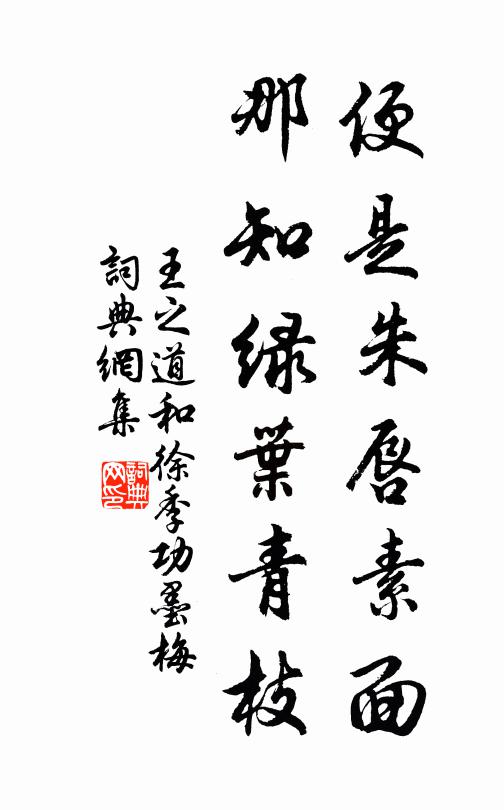 便是朱唇素面
那知綠葉青枝
王之道和徐季功墨梅
詞典網集
詞典网印